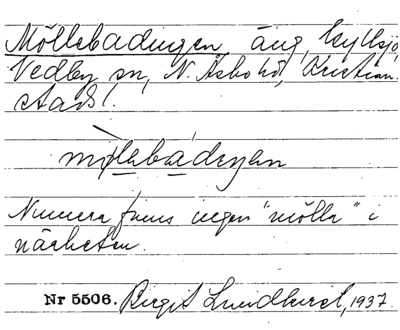 Möllebadugen, äng, Kyllsjö
Vedby sn, N. Åsbo hd, Kristian-
stads l.
Numera finns ingen "mölla" i
närheten.
Nr 5506. Birgit Lundhurst, 1937.